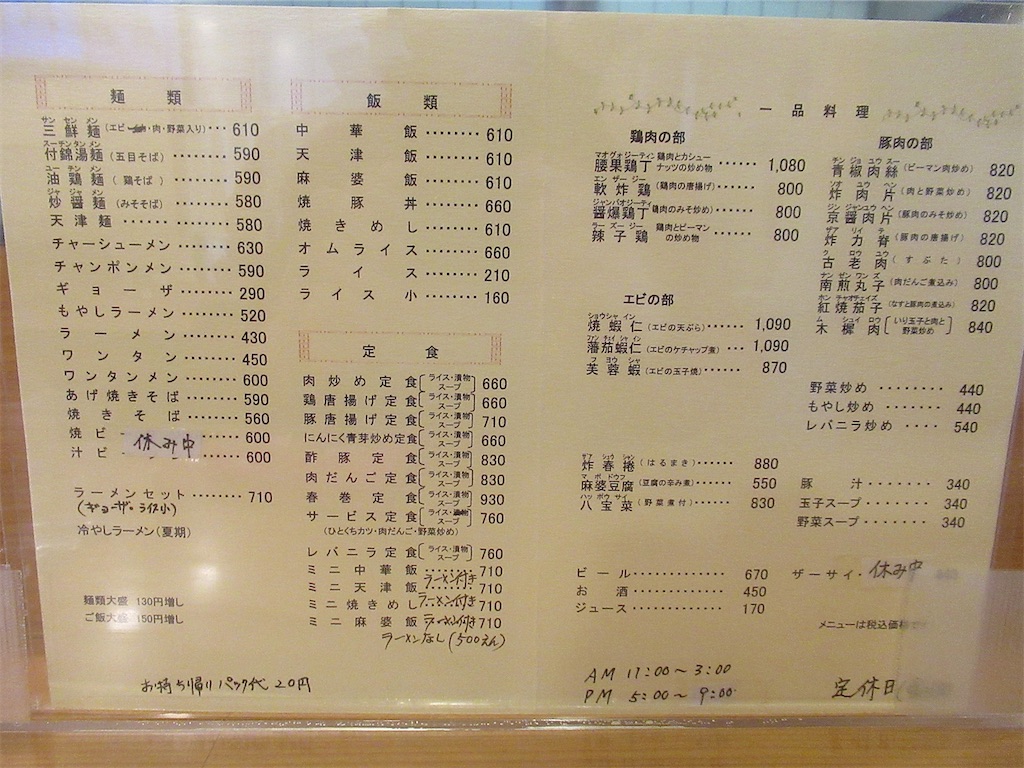 麺類
サン セン メン
三鮮麺(エビ・肉・野菜入り)‥‥610
スーチンタンメン
付錦湯麺(五目そば)‥‥‥‥590
ユー チン メン
油鶏麺(鶏そば)‥‥‥‥590
ジャ ジャ メン
炒醤麺(みそそば)‥‥‥‥580
天津麺‥‥‥‥580
チャーシューメン‥‥‥‥630
チャンポンメン‥‥‥‥590
ギョーザ‥‥‥‥290
もやしラーメン‥‥‥‥520
ラーメン‥‥‥‥430
ワンタン‥‥‥‥450
ワンタンメン‥‥‥‥600
あげ焼きそば‥‥‥‥590
焼きそば‥‥‥‥560
焼ビ 休み中‥‥600
汁ビ‥‥600
ラーメンセット‥‥‥‥710
(ギョーザ・ライス小)
冷やしラーメン(夏期)
麺類大盛 130円増し
ご飯大盛 150円増し
お持ち帰りパック代 20円
飯類
中華飯‥‥‥‥610
天津飯‥‥‥‥610
麻婆飯‥‥‥‥610
焼豚丼‥‥‥‥660
焼きめし‥‥‥‥610
オムライス‥‥‥‥660
ライス‥‥‥‥210
ライス小‥‥‥‥160
定食
肉炒め定食[ライス・漬物 スープ]660
鶏唐揚げ定食[ライス・漬物 スープ]660
豚唐揚げ定食[ライス・漬物 スープ]710
にんにく青芽炒め定食[ライス・漬物 スープ]660
酢豚定食[ライス・漬物 スープ]830
肉だんご定食[ライス・漬物 スープ]830
春巻定食[ライス・漬物 スープ]930
サービス定食[ライス・漬物 スープ]760
(ひとくちカツ・肉だんご・野菜炒め)
レバニラ定食[ライス・漬物 スープ]760
ミニ中華飯‥‥‥‥710
ミニ天津飯 ラーメン付き 710
ミニ焼きめし ラーメン付き 710
ミニ麻婆飯 ラーメン付き 710
ラーメンなし(500えん)
一品料理
鶏肉の部
マオグォジーティン
腰果鶏丁 鶏肉とカシューナッツの炒め物‥‥‥1,080
エン ザー ジー
軟炸鶏(鶏肉の唐揚げ)‥‥‥800
ジャンバオジーティ
醤爆鶏丁(鶏肉のみそ炒め)‥‥‥800
ラー ズー ジー
辣子鶏 鶏肉とピーマンの炒め物‥‥‥800
エビの部
ショウシャ イン
焼蝦仁(エビの天ぷら)‥‥‥1,090
ファン チィ シャ イン
蕃茄蝦仁(エビのケチャップ煮)‥‥1,090
フ ヨウ シャ
芙蓉蝦(エビの玉子焼)‥‥‥870
ザア シュウ シャン
炸春捲(はるまき)‥‥‥880
マ ボ ドウフ
麻婆豆腐(豆腐の辛み煮)‥‥‥550
ハッ ポウ サイ
八宝菜(野菜煮付)‥‥‥830
ビール‥‥‥‥670
お酒‥‥‥‥450
ジュース‥‥‥‥170
AM 11:00～3:00
PM 5:00～9:00
豚肉の部
チン ジョ ユウ スー
青椒肉絲(ピーマン肉炒め)820
ソオ ユウ ペン
炸肉片(肉と野菜炒め)820
ジン ジャンユウ ペン
京醤肉片(豚肉のみそ炒め)820
ザア リイ
炸力脊(豚肉の唐揚げ)820
ク ロウ ユウ
古老肉(すぶた)800
ナン ゼン ワン ズ
南煎丸子(肉だんご煮込み)800
ホン チャオチェイズ
紅焼茄子(なすと豚肉の煮込み)820
ム シュイ ロウ
木樨肉[いり玉子と肉と野菜炒め]840
野菜炒め‥‥‥‥440
もやし炒め‥‥‥‥440
レバニラ炒め‥‥‥‥540
豚汁‥‥‥‥340
玉子スープ‥‥‥‥340
野菜スープ‥‥‥‥340
ザーサイ・休み中
メニューは税込価格
定休日